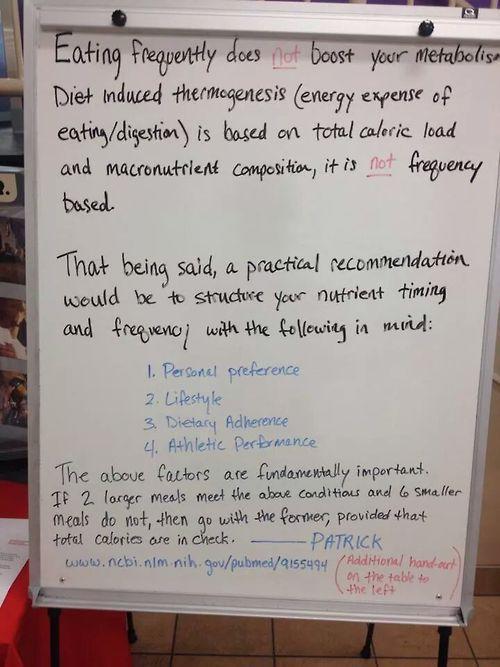 Eating frequently does not boost your metabolism
Diet induced thermogenesis (energy expense of
eating/digestion) is based on total caloric load
and macronutrient composition, it is not frequency
based.
That being said, a practical recommendation
would be to structure your nutrient timing
and frequency with the following in mind:
1. Personal preference
2. Lifestyle
3. Dietary Adherence
4. Athletic Performance
The above factors are fundamentally important.
If 2 larger meals meet the above conditions and 6 smaller
meals do not, then go with the former, provided that
total calories are in check. —— PATRICK
www.ncbi.nlm.nih.gov/pubmed/9155494
(Additional hand-out
on the table to
the left)